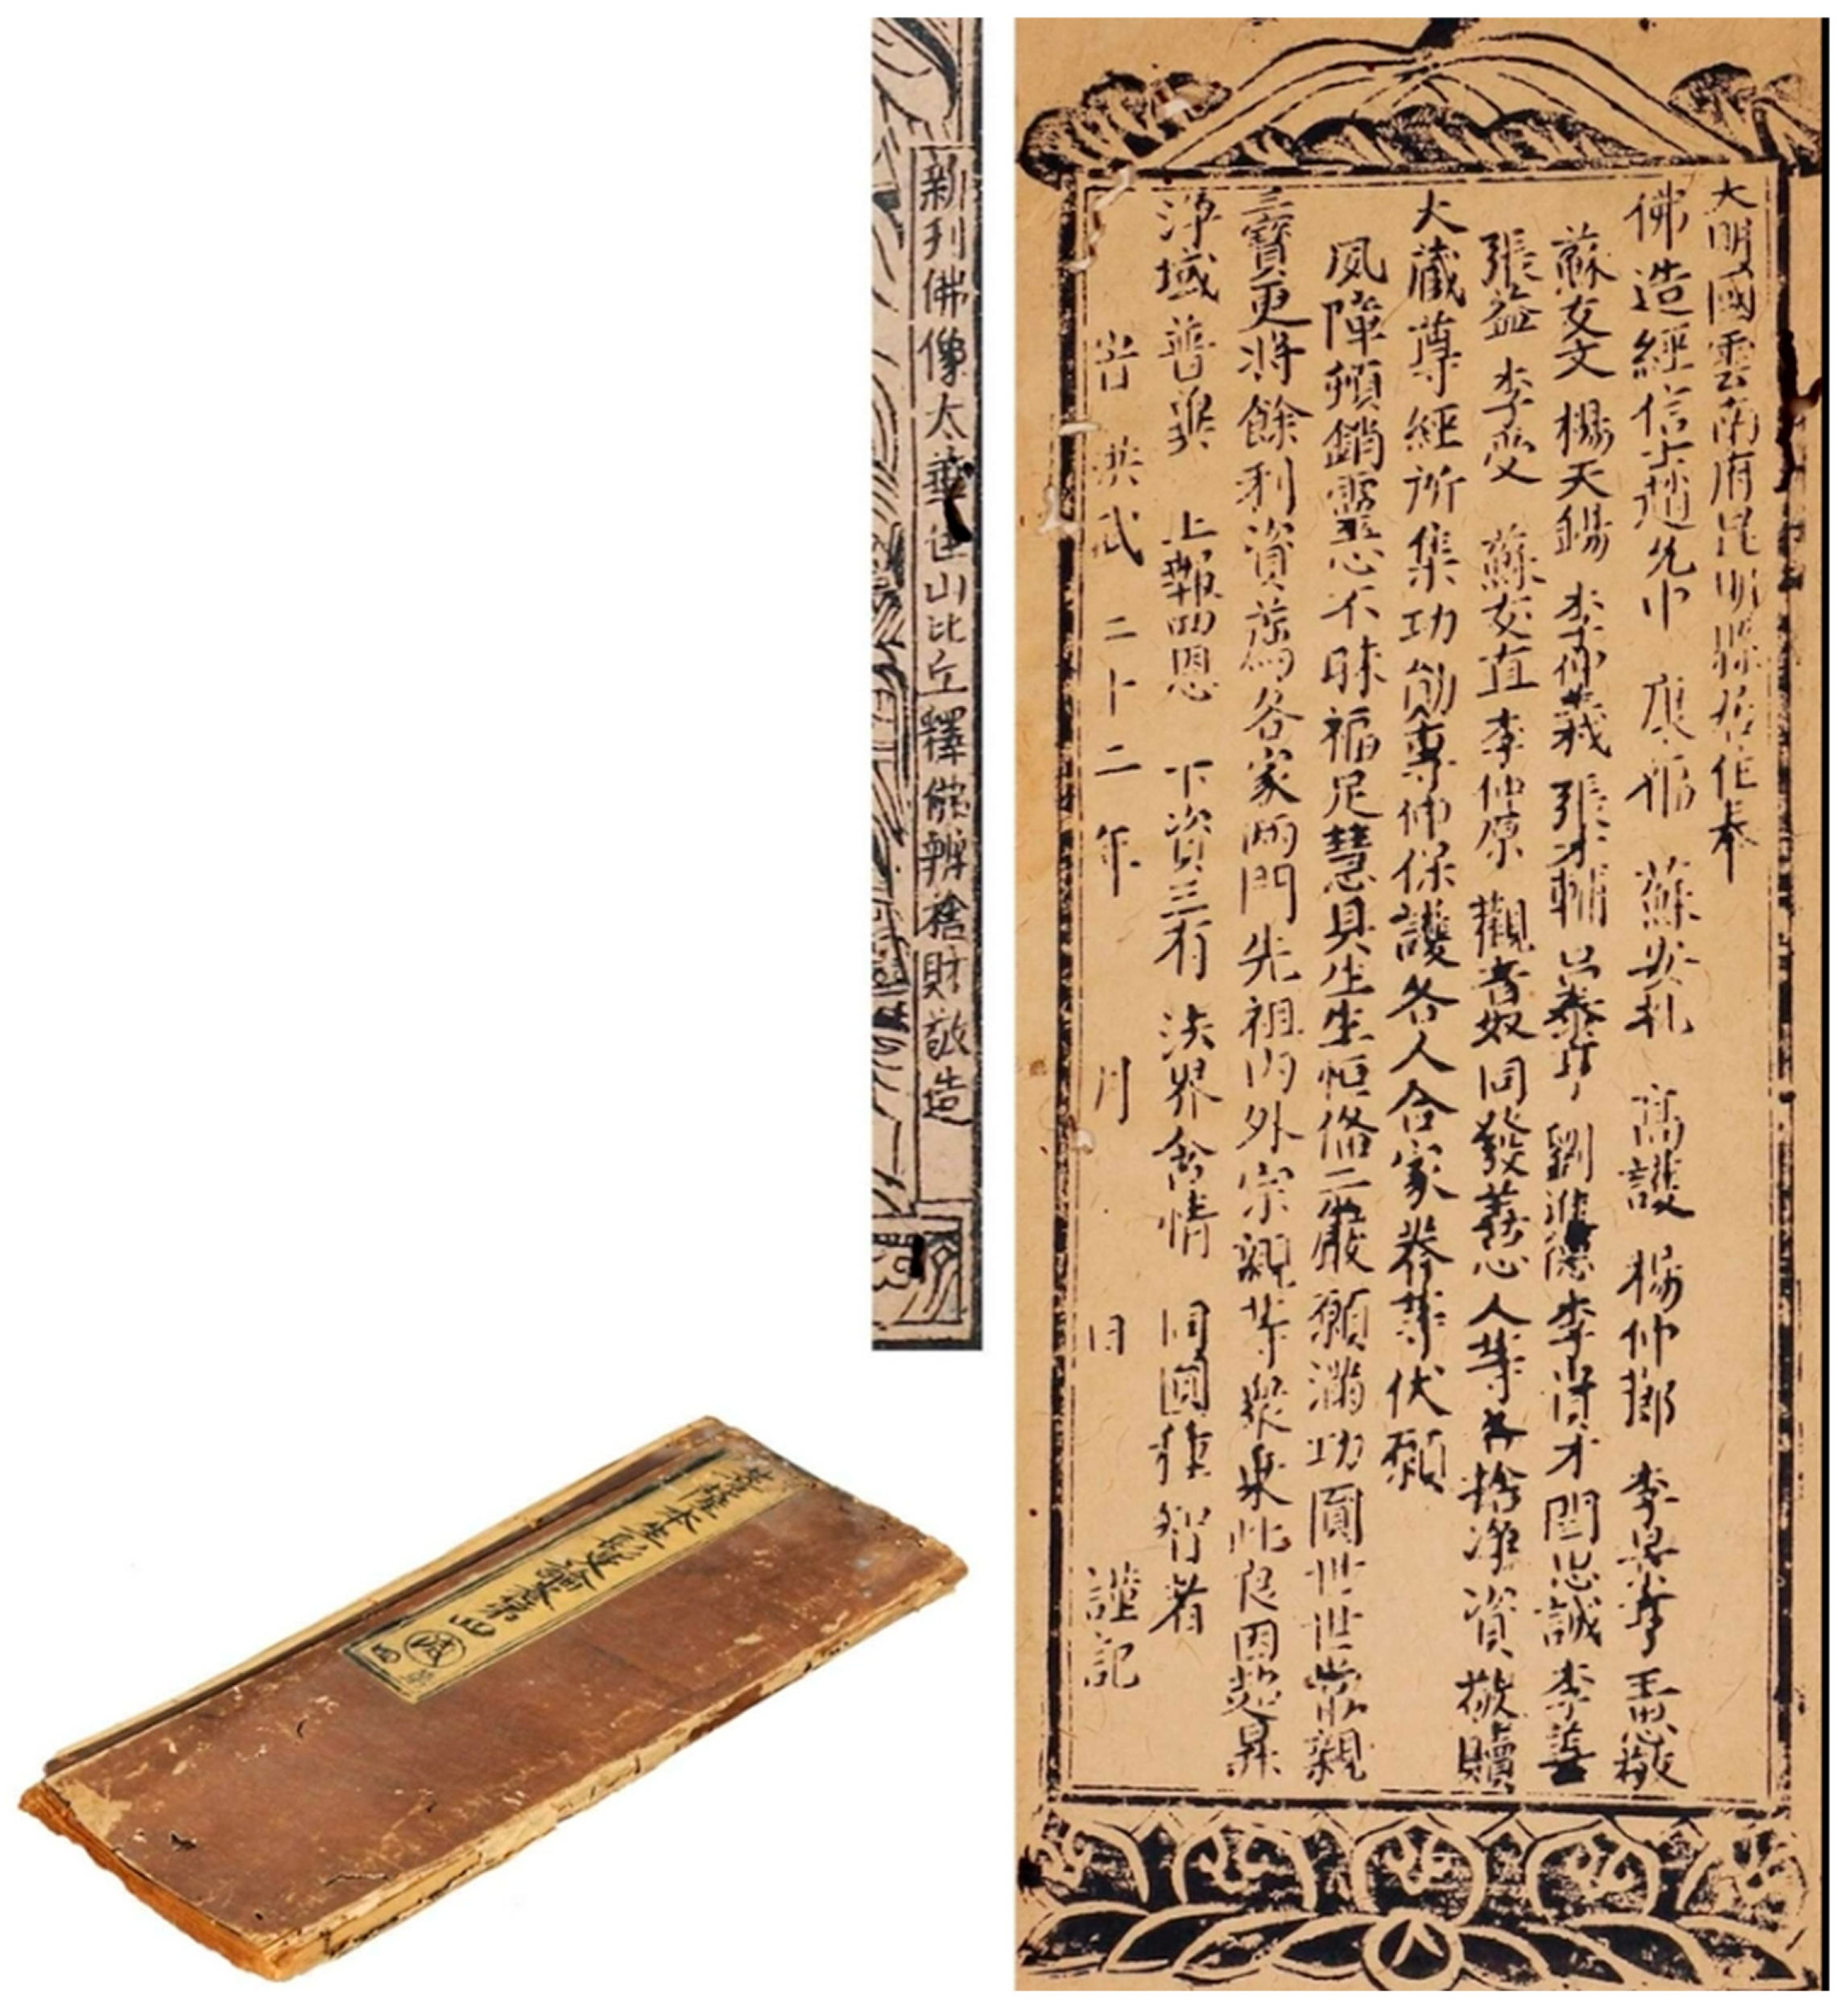 大明國雲南府昆明縣居住奉
佛造經信士趙允中 康福 蘇安礼 高護 楊仲 李 孝
蘇文 楊天錫 李仲義 張才輔 呂泰亨 劉進德 李 才 閏 誠 李善
張益 李受 蘇文直 李仲原 觀音奴 同發善心人等各捨淨資敬贖
大藏尊經所集功勛專伸保護各人合家眷等伏願
夙障頓銷靈心不昧福足慧具生生恒俻二嚴願滿功圓世世常親
三寶更將餘利資荐為各家兩門先祖內外宗親等衆乘此良因超昇
淨域普與 上報四恩 下資三有 法界含情 同圓種智者
旹洪武二十二年 月 日 謹記
新刊佛像太華 山比丘釋能辨捨財敬造
菩薩本生鬘論卷第四 四